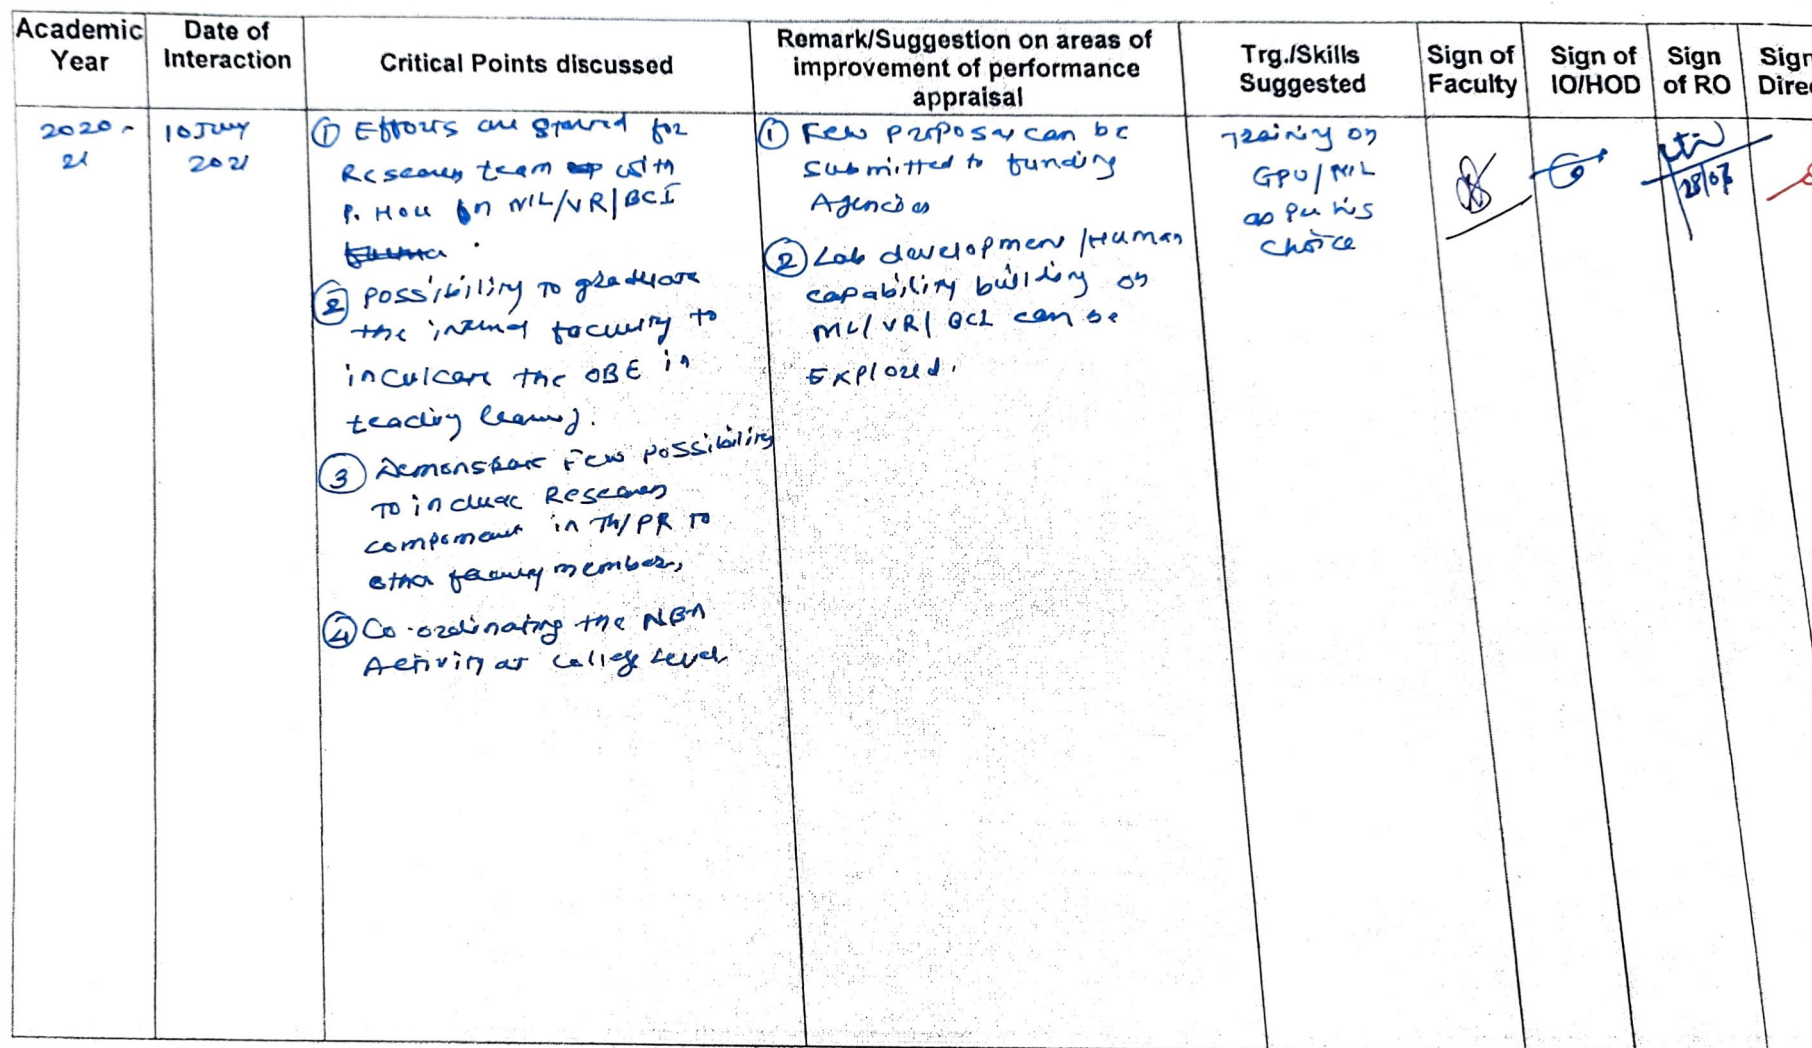 Academic Year
Date of Interaction
Critical Points discussed
Remark/Suggestion on areas of improvement of performance appraisal
Trg./Skills Suggested
Sign of Faculty
Sign of IO/HOD
Sign of RO
Sign
Direc
2020-
21
10 July
2021
① Efforts are started for
Research team with
P. on ML/VR/BCI
② Possibility to
the internal faculty to
inculcate the OBE in
teaching learning.
③ Demonstrate Few possibility
To include Research
component in Th/PR to
other faculty members,
④ Co-ordinating the NBA
Activity at College Level
① Few proposal can be
submitted to funding
Agencies
② Lab development/Human
capability building on
ML/VR/BCI can be
Explored.
Training on
GPU/ML
as per his
choice
28/07